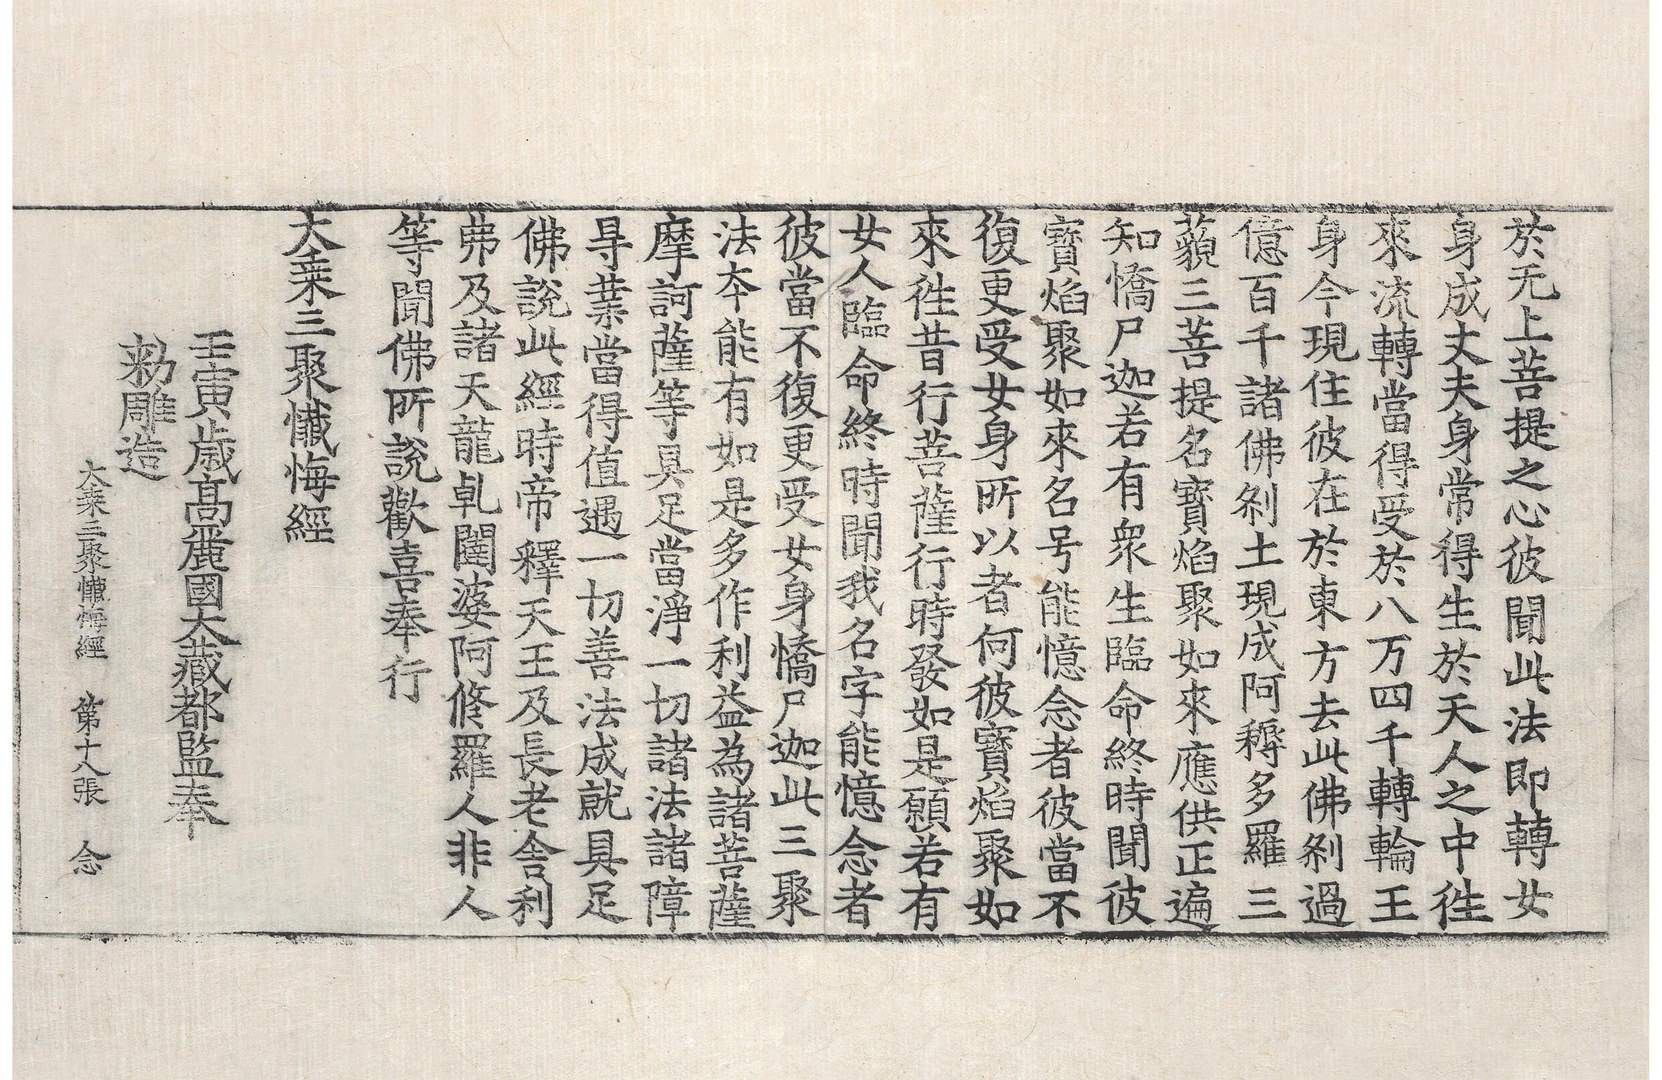 於无上菩提之心彼聞此法即轉女
身成丈夫身常得生於天人之中徃
來流轉當得受於八万四千轉輪王
身今現住彼在於東方去此佛刹過
億百千諸佛刹土現成阿耨多羅三
藐三菩提名寶焰聚如來應供正遍
知憍尸迦若有衆生臨命終時聞彼
寶焰聚如來名号能憶念者彼當不
復更受女身所以者何彼寶焰聚如
來徃昔行菩薩行時發如是願若有
女人臨命終時聞我名字能憶念者
彼當不復更受女身憍尸迦此三聚
法夲能有如是多作利益為諸菩薩
摩訶薩等具足當淨一切諸法諸障
㝵業當得值遇一切善法成就具足
佛說此經時帝釋天王及長老舍利
弗及諸天龍乹闥婆阿修羅人非人
等聞佛所說歡喜奉行
大乗三聚懺悔經
壬寅歲高麗國大藏都監奉
勑雕造
大乗三聚懺悔經 第十八張 念